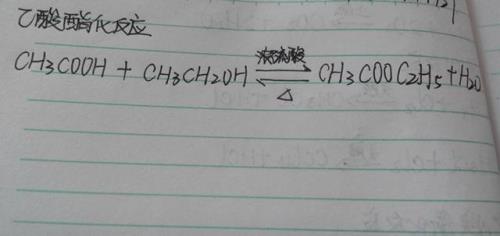 乙酸酯化反应
CH3COOH + CH3CH2OH ⇌ CH3COOC2H5 + H2O
浓硫酸
△